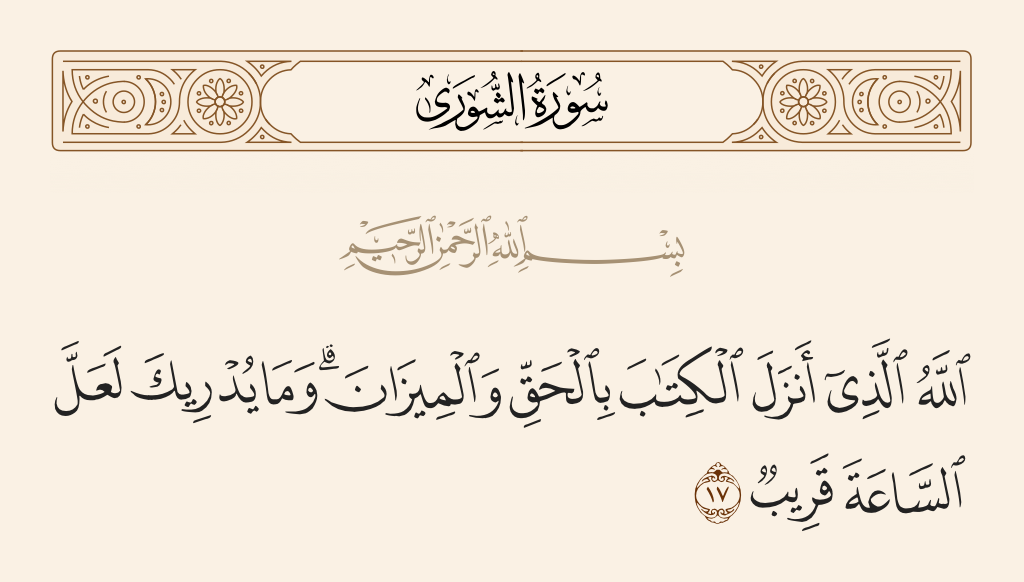 سُورَةُ الشُّورَىٰ
بِسْمِ ٱللَّهِ ٱلرَّحْمَٰنِ ٱلرَّحِيمِ
ٱللَّهُ ٱلَّذِىٓ أَنزَلَ ٱلْكِتَـٰبَ بِٱلْحَقِّ وَٱلْمِيزَانَ ۗ وَمَا يُدْرِيكَ لَعَلَّ
ٱلسَّاعَةَ قَرِيبٌ ١٧